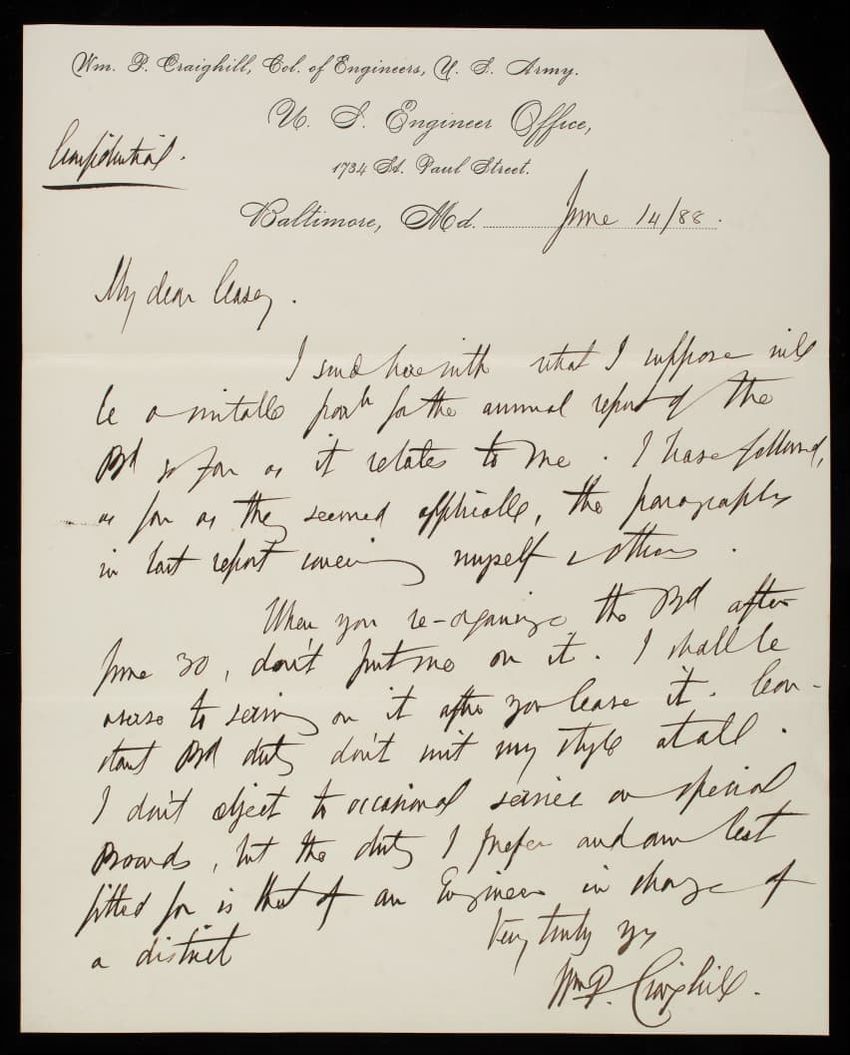 Wm. P. Craighill, Col. of Engineers, U. S. Army.
U. S. Engineer Office,
Confidential.
1734 St. Paul Street.
Baltimore, Md. June 14/88.
My dear Casey.
I send herewith what I suppose will
be a suitable for the annual report of the
Bd so far as it relates to me. I have followed,
as far as they seemed applicable, the paragraphs
in last report covering myself & others.
When you re-organize the Bd after
June 30, don't put me on it. I shall be
averse to serving on it after you leave it. Con-
stant Bd duty don't suit my style at all.
I don't object to occasional service on special
Boards, but the duty I prefer and am best
fitted for is that of an Engineer in charge of
a district
Very truly yrs
Wm P. Craighill.